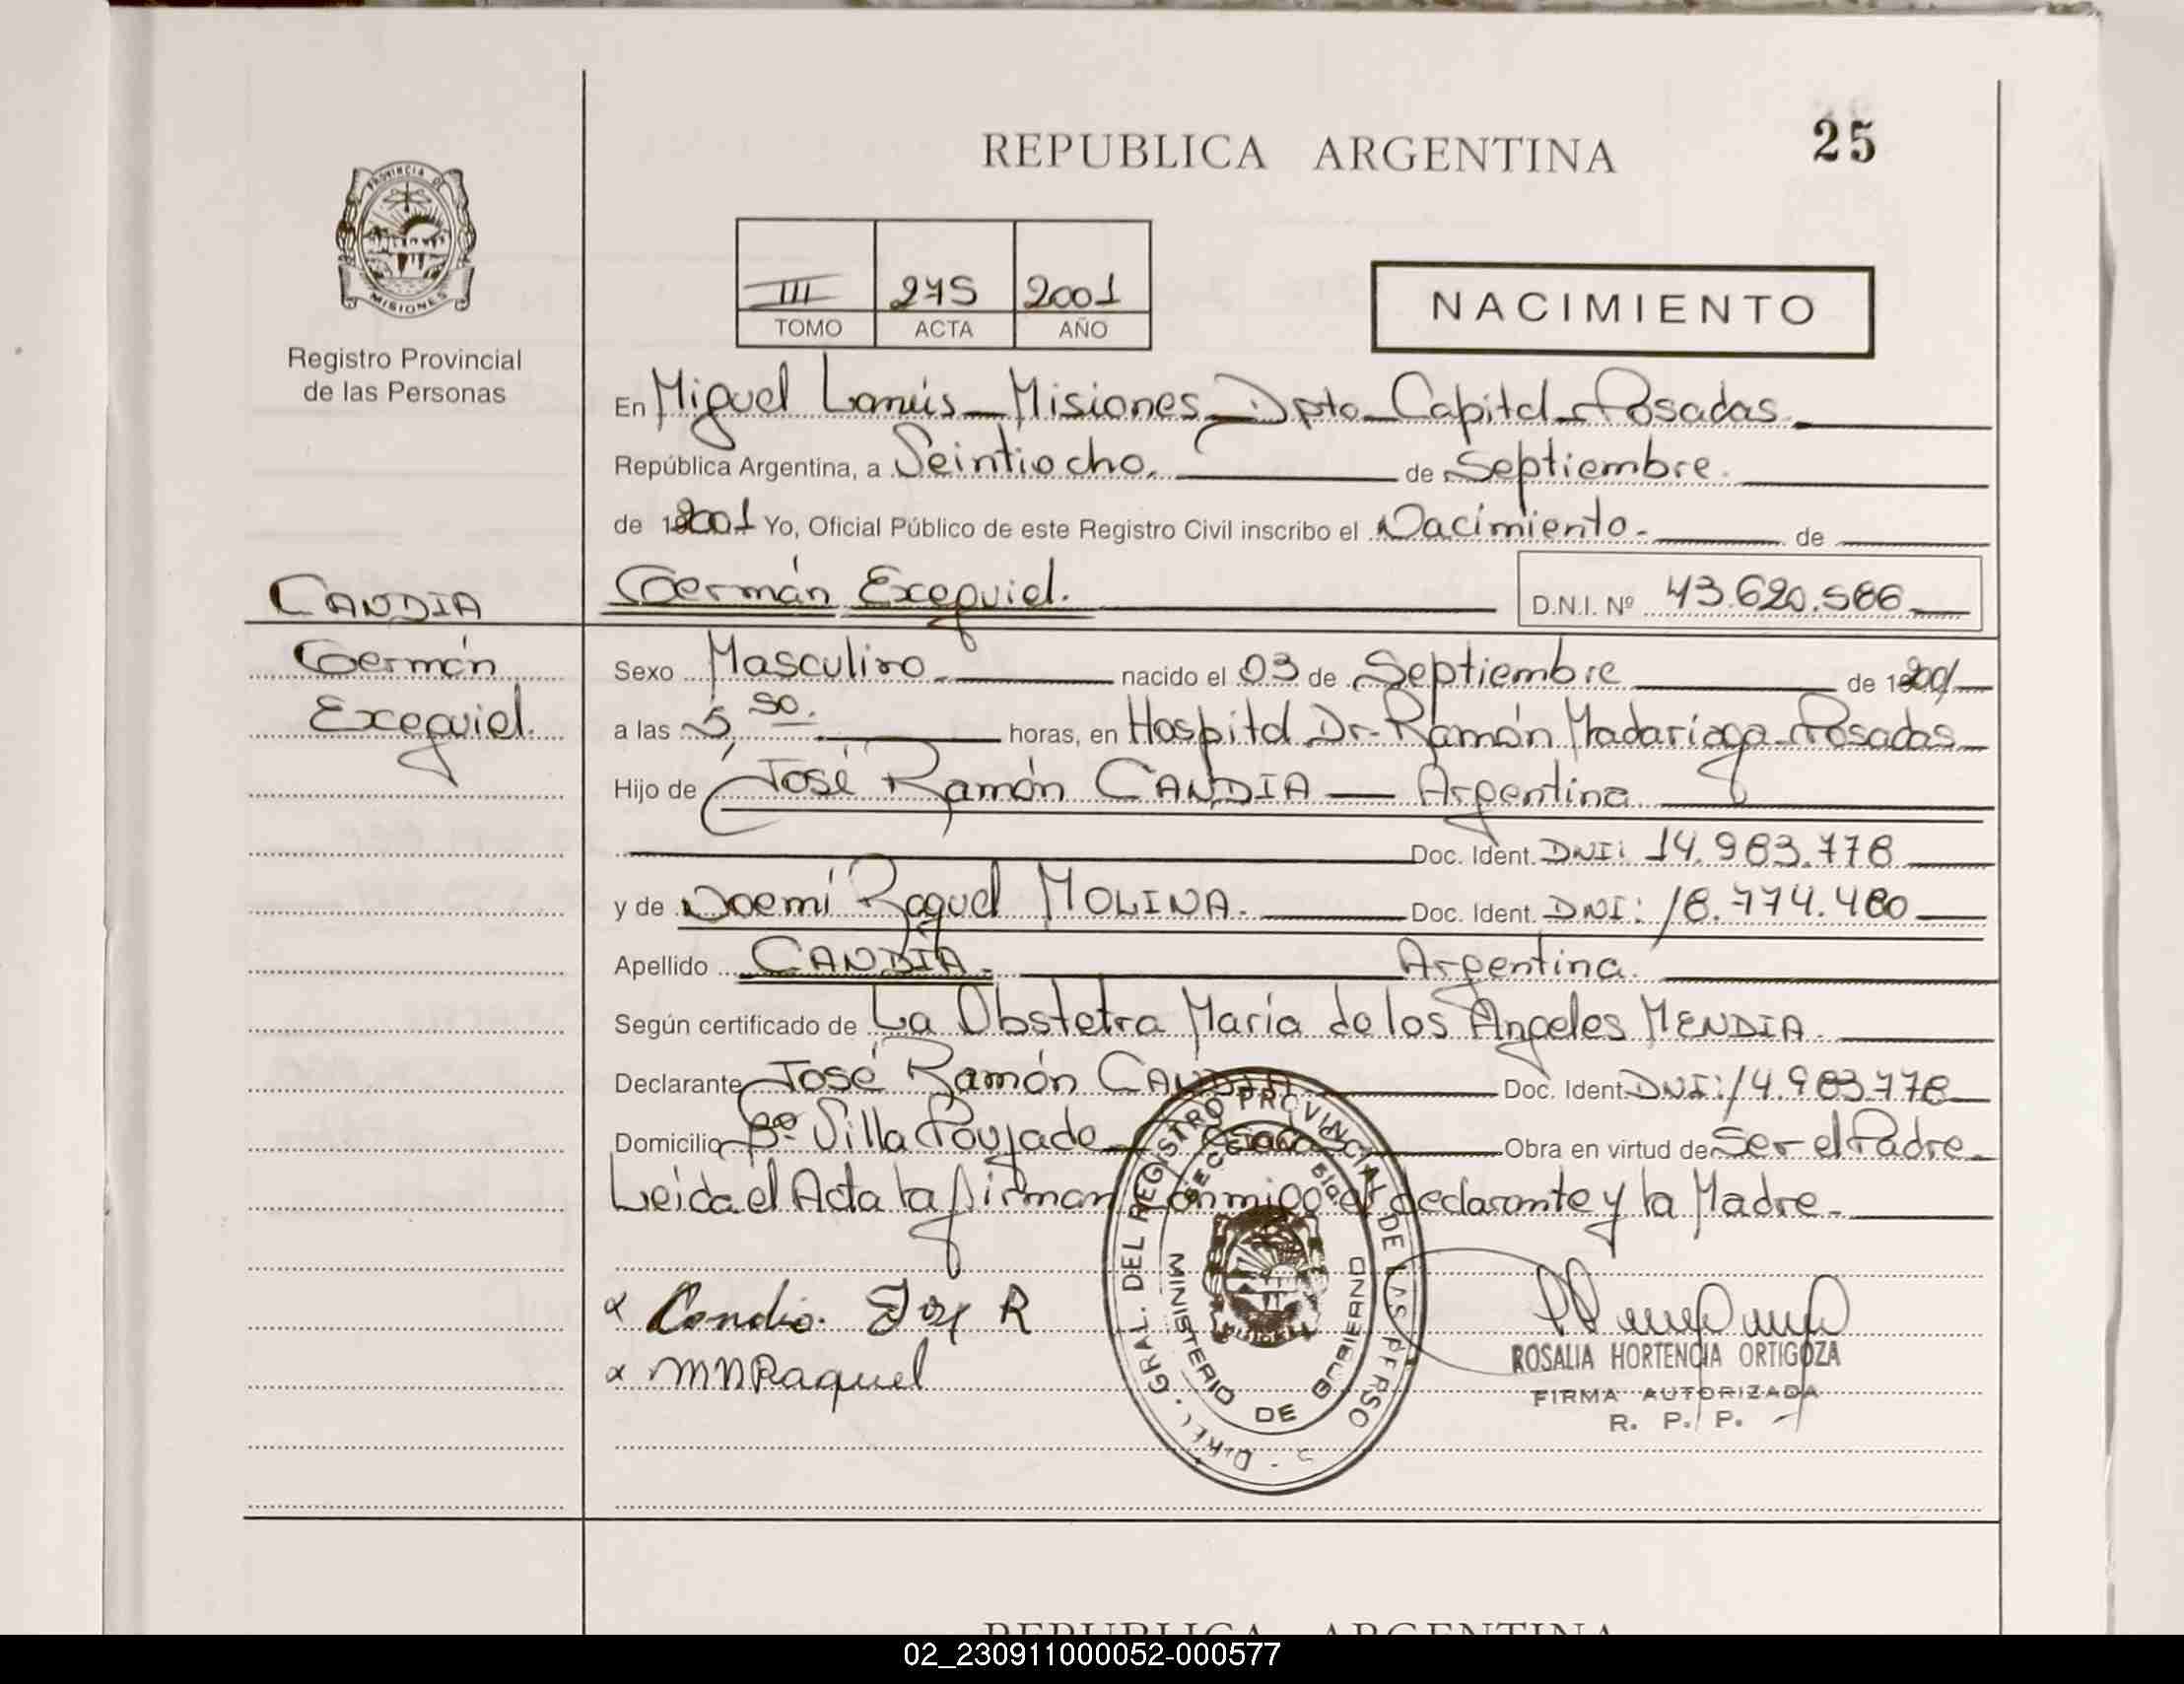 REPUBLICA ARGENTINA
25
PROVINCIA DE
MISIONES
Registro Provincial
de las Personas
III 275 2001
TOMO ACTA AÑO
NACIMIENTO
En Miguel Lanús - Misiones - Dpto - Capital - Posadas
República Argentina, a Veintiocho. de Septiembre.
de 2001 Yo, Oficial Público de este Registro Civil inscribo el Nacimiento - de
CANDIA
Germán Exequiel. D.N.I. Nº 43.620.586
Germán
Exequiel.
Sexo Masculino nacido el 03 de Septiembre de 2001
a las 5,50. horas, en Hospital Dr. Ramón Madariaga - Posadas
Hijo de José Ramón CANDIA — Argentina
Doc. Ident. DNI: 14.983.778
y de Noemí Raquel MOLINA. Doc. Ident. DNI: 18.774.480
Apellido CANDIA. Argentina.
Según certificado de La Obstetra María de los Angeles MENDIA.
Declarante José Ramón CANDIA Doc. Ident. DNI: 14.983.778
Domicilio Bº Villa Poujade - Posadas Obra en virtud de Ser el Padre
Leída el Acta la firman conmigo el declarante y la Madre.
x Candia. José R
x MNRaquel
DIREC. GRAL. DEL REGISTRO PROVINCIAL DE LAS PERSO
MINISTERIO DE GOBIERNO
ROSALIA HORTENCIA ORTIGOZA
FIRMA AUTORIZADA
R. P. P.
REPUBLICA ARGENTINA
02_230911000052-000577